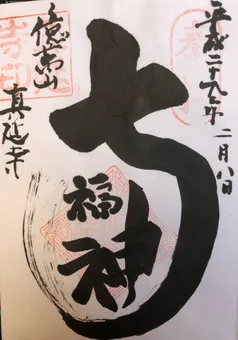 平成二十九年
二月八日
七
福
神
億萬山
真延寺